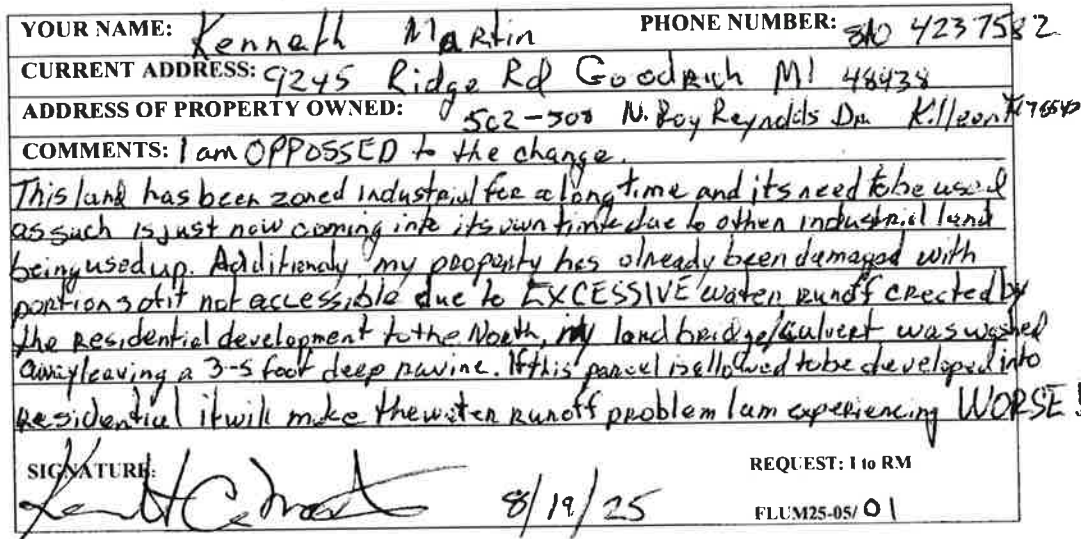 YOUR NAME: Kenneth Martin PHONE NUMBER: 810 4237582
CURRENT ADDRESS: 9245 Ridge Rd Goodrich MI 48438
ADDRESS OF PROPERTY OWNED: 502-508 N. Roy Reynolds Dr. Killeen TX 76543
COMMENTS: I am OPPOSSED to the change.
This land has been zoned industrial for a long time and its need to be used
as such is just now coming into its own time due to other industrial land
being used up. Additionaly my property has already been damaged with
portions of it not accessible due to EXCESSIVE water runoff created by
the residential development to the North, my land bridge/culvert was washed
away leaving a 3-5 foot deep ravine. If this parcel is allowed to be developed into
Residential it will make the water runoff problem I am experiencing WORSE!
SIGNATURE: 8/19/25 REQUEST: I to RM
FLUM25-05/01